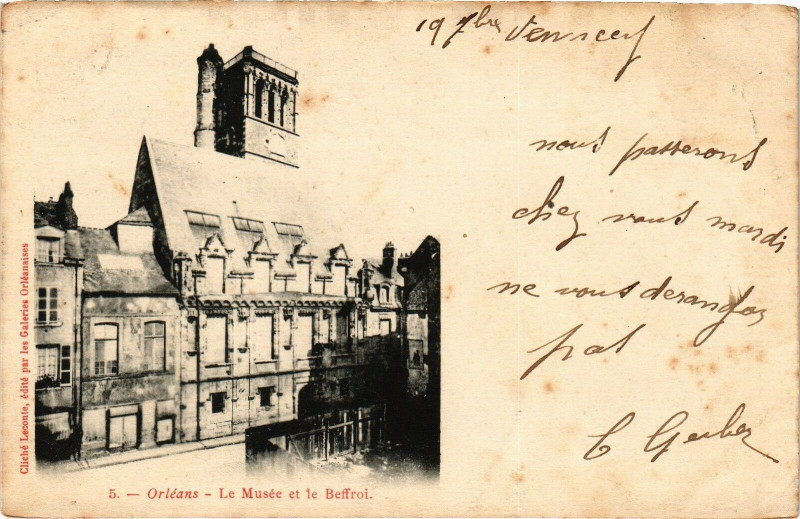 19 7bre
nous passerons
chez vous mardi
ne vous derangez
pas
Cliché Leconte, édité par les Galeries Orléanaises
5. — Orléans - Le Musée et le Beffroi.